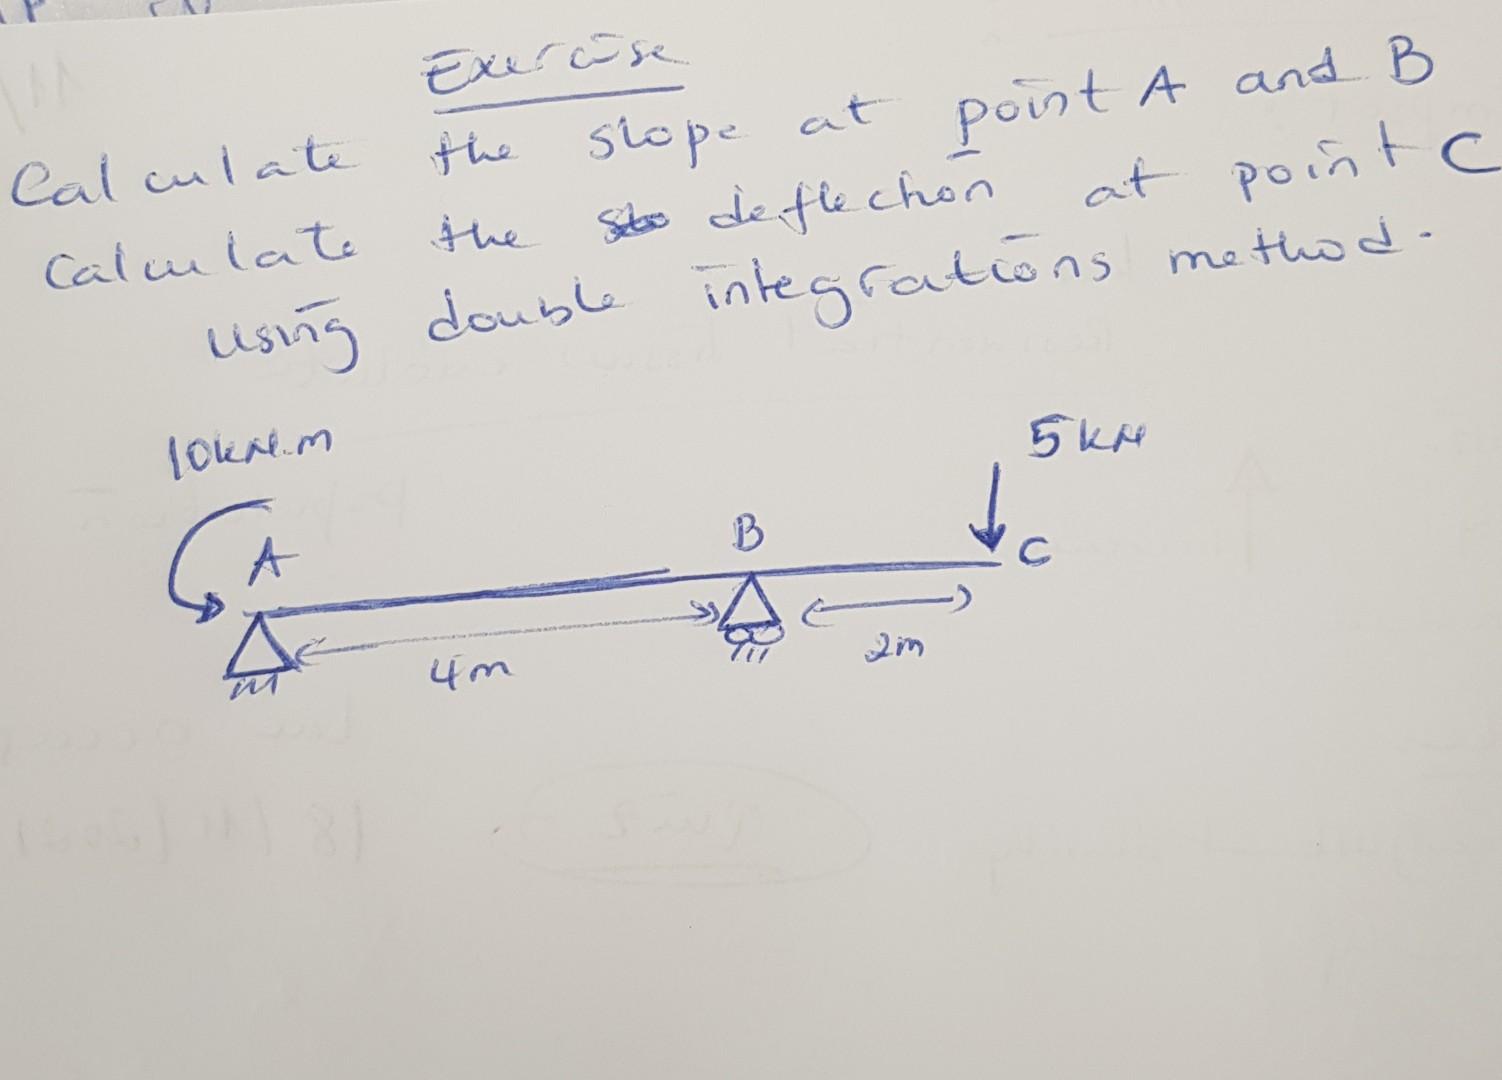 Exercise
Calculate the slope at point A and B
Calculate the deflection at point C
using double integrations method.
10kN.m
5kN
A
B
C
4m
2m